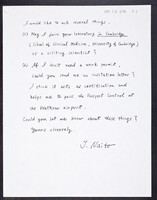 I would like to ask several things.
(1) May I join your laboratory in Cambridge
(School of Clinical Medicine, University of Cambridge)
as a visiting scientist?
(2) If I don't need a work permit,
could you send me an invitation letter?
I think it acts as certification and
helps me to pass the Passport Control at
the Heathrow airport.
Could you let me know about these things?
Yours sincerely,
Y. Naito